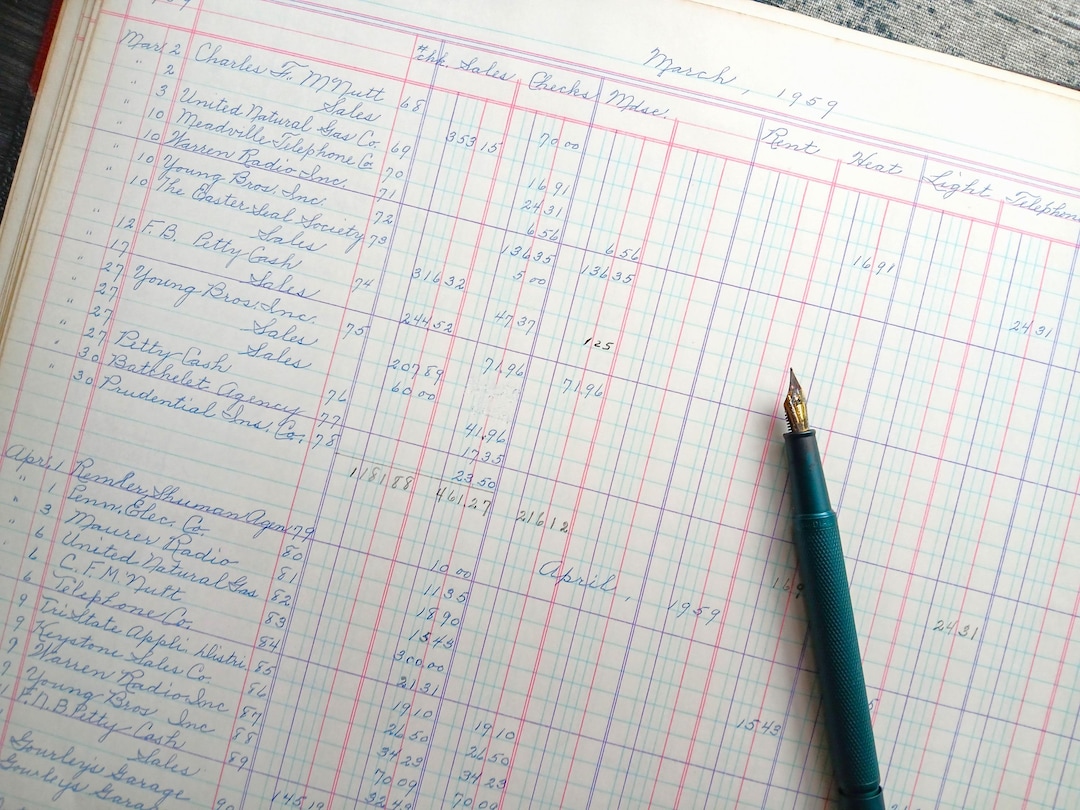 March, 1959
Chk. Sales Checks Mdse. Rent Heat Light Telephone
Mar. 2 Charles F. McNutt 68 70.00
" 2 Sales 353.15
" 3 United Natural Gas Co. 69 16.91 16.91
" 10 Meadville Telephone Co 70 24.31 24.31
" 10 Warren Radio Inc. 71 6.56 6.56
" 10 Young Bros. Inc. 72 136.35 136.35
" 10 The Easter Seal Society 73 5.00
Sales 316.32
" 12 F.B. Petty Cash 74 47.37 1.25
" 17 Sales 244.52
" 27 Young Bros. Inc. 75 71.96 71.96
" 27 Sales 207.89
" 27 Sales 60.00
" 27 Petty Cash 76 41.96
" 30 Agency 77 17.35
" 30 Prudential Ins. Co. 78 23.50
1181.88 461.27 216.12 24.31
April, 1959
Apr. 1 Shuman Agen 79 10.00
" 1 Penn. Elec. Co. 80 11.35
" 3 Maurer Radio 81 18.90
" 6 United Natural Gas 82 15.43 15.43
6 C. F. McNutt 83 300.00
6 Telephone Co. 84 21.31
9 TriState Appli. Distri. 85 19.10 19.10
9 Keystone Sales Co. 86 26.50 26.50
9 Warren Radio Inc 87 34.23 34.23
9 Young Bros Inc 88 70.09 70.09
F.N.B Petty Cash 89
Sales
Gourleys Garage 90
Gourleys